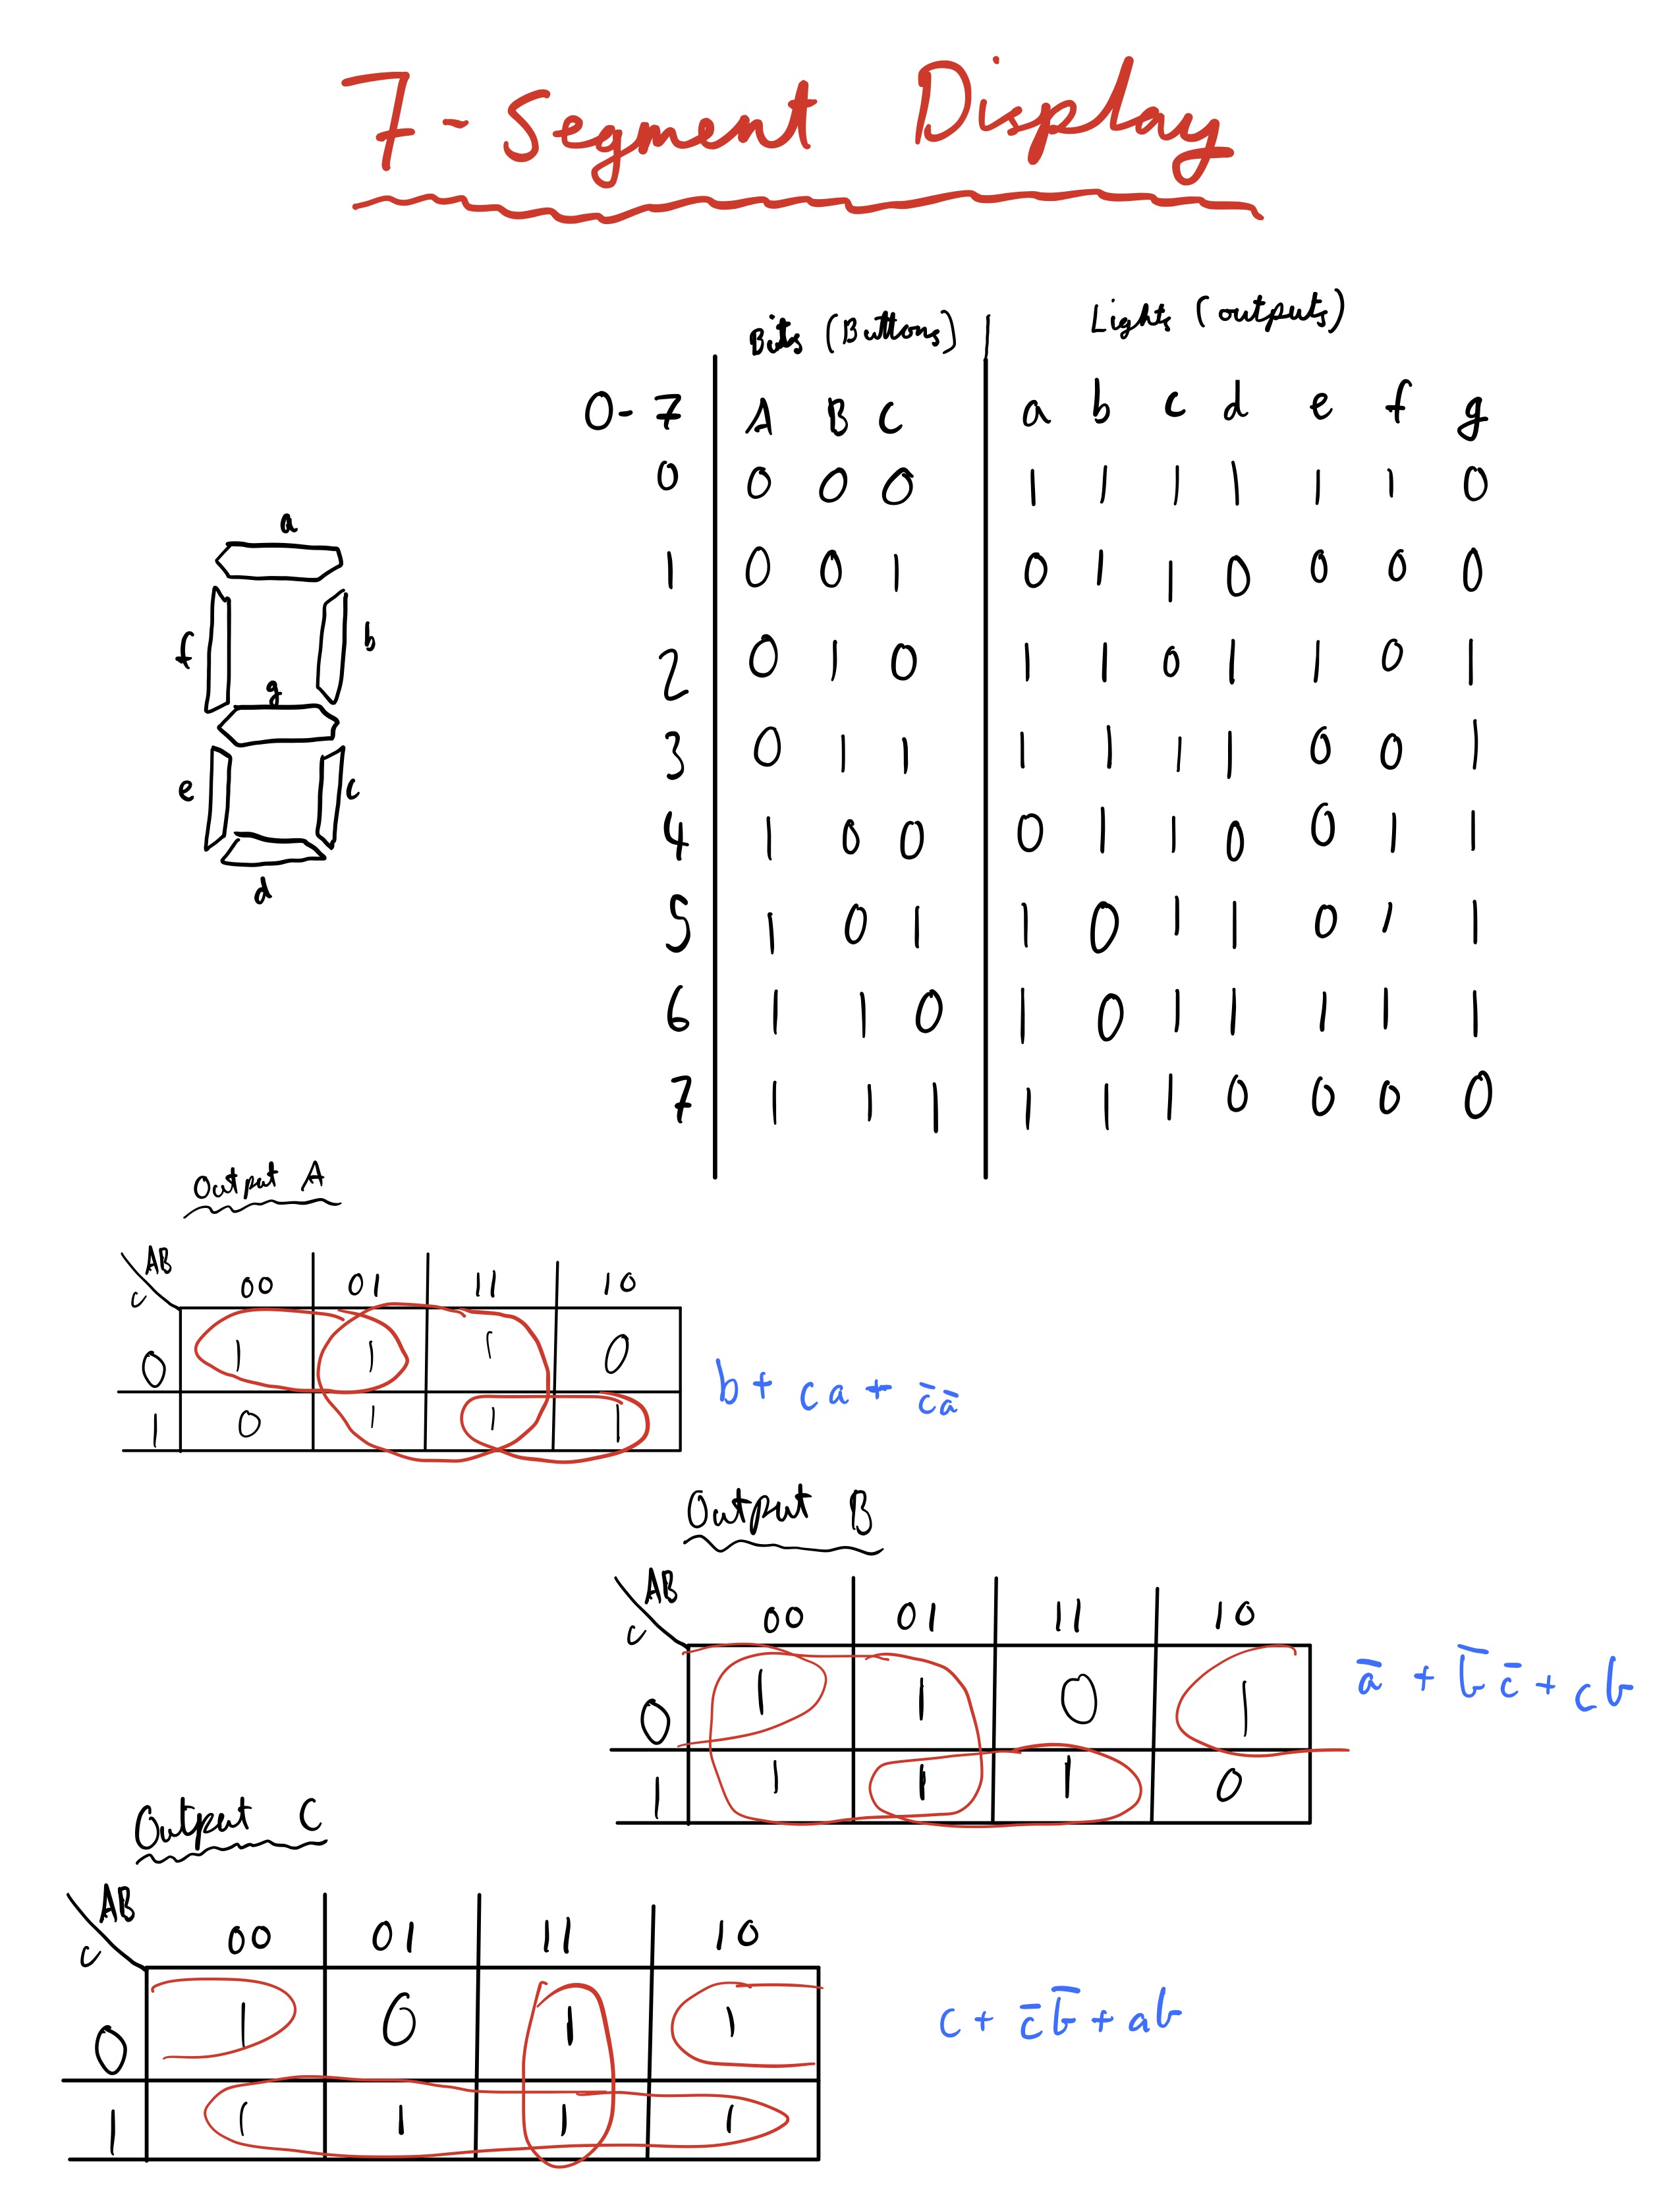 7-Segment Display
Bits (Buttons) Lights (outputs)
0-7 A B C a b c d e f g
0 0 0 0 1 1 1 1 1 1 0
1 0 0 1 0 1 1 0 0 0 0
2 0 1 0 1 1 0 1 1 0 1
3 0 1 1 1 1 1 1 0 0 1
4 1 0 0 0 1 1 0 0 1 1
5 1 0 1 1 0 1 1 0 1 1
6 1 1 0 1 0 1 1 1 1 1
7 1 1 1 1 1 1 0 0 0 0
a
f b
g
e c
d
Output A
AB
C 00 01 11 10
0 1 1 1 0
1 0 1 1 1
b + ca + c̄ā
Output B
AB
C 00 01 11 10
0 1 1 0 1
1 1 1 1 0
ā + b̄c̄ + cb
Output C
AB
C 00 01 11 10
0 1 0 1 1
1 1 1 1 1
c + c̄b̄ + ab